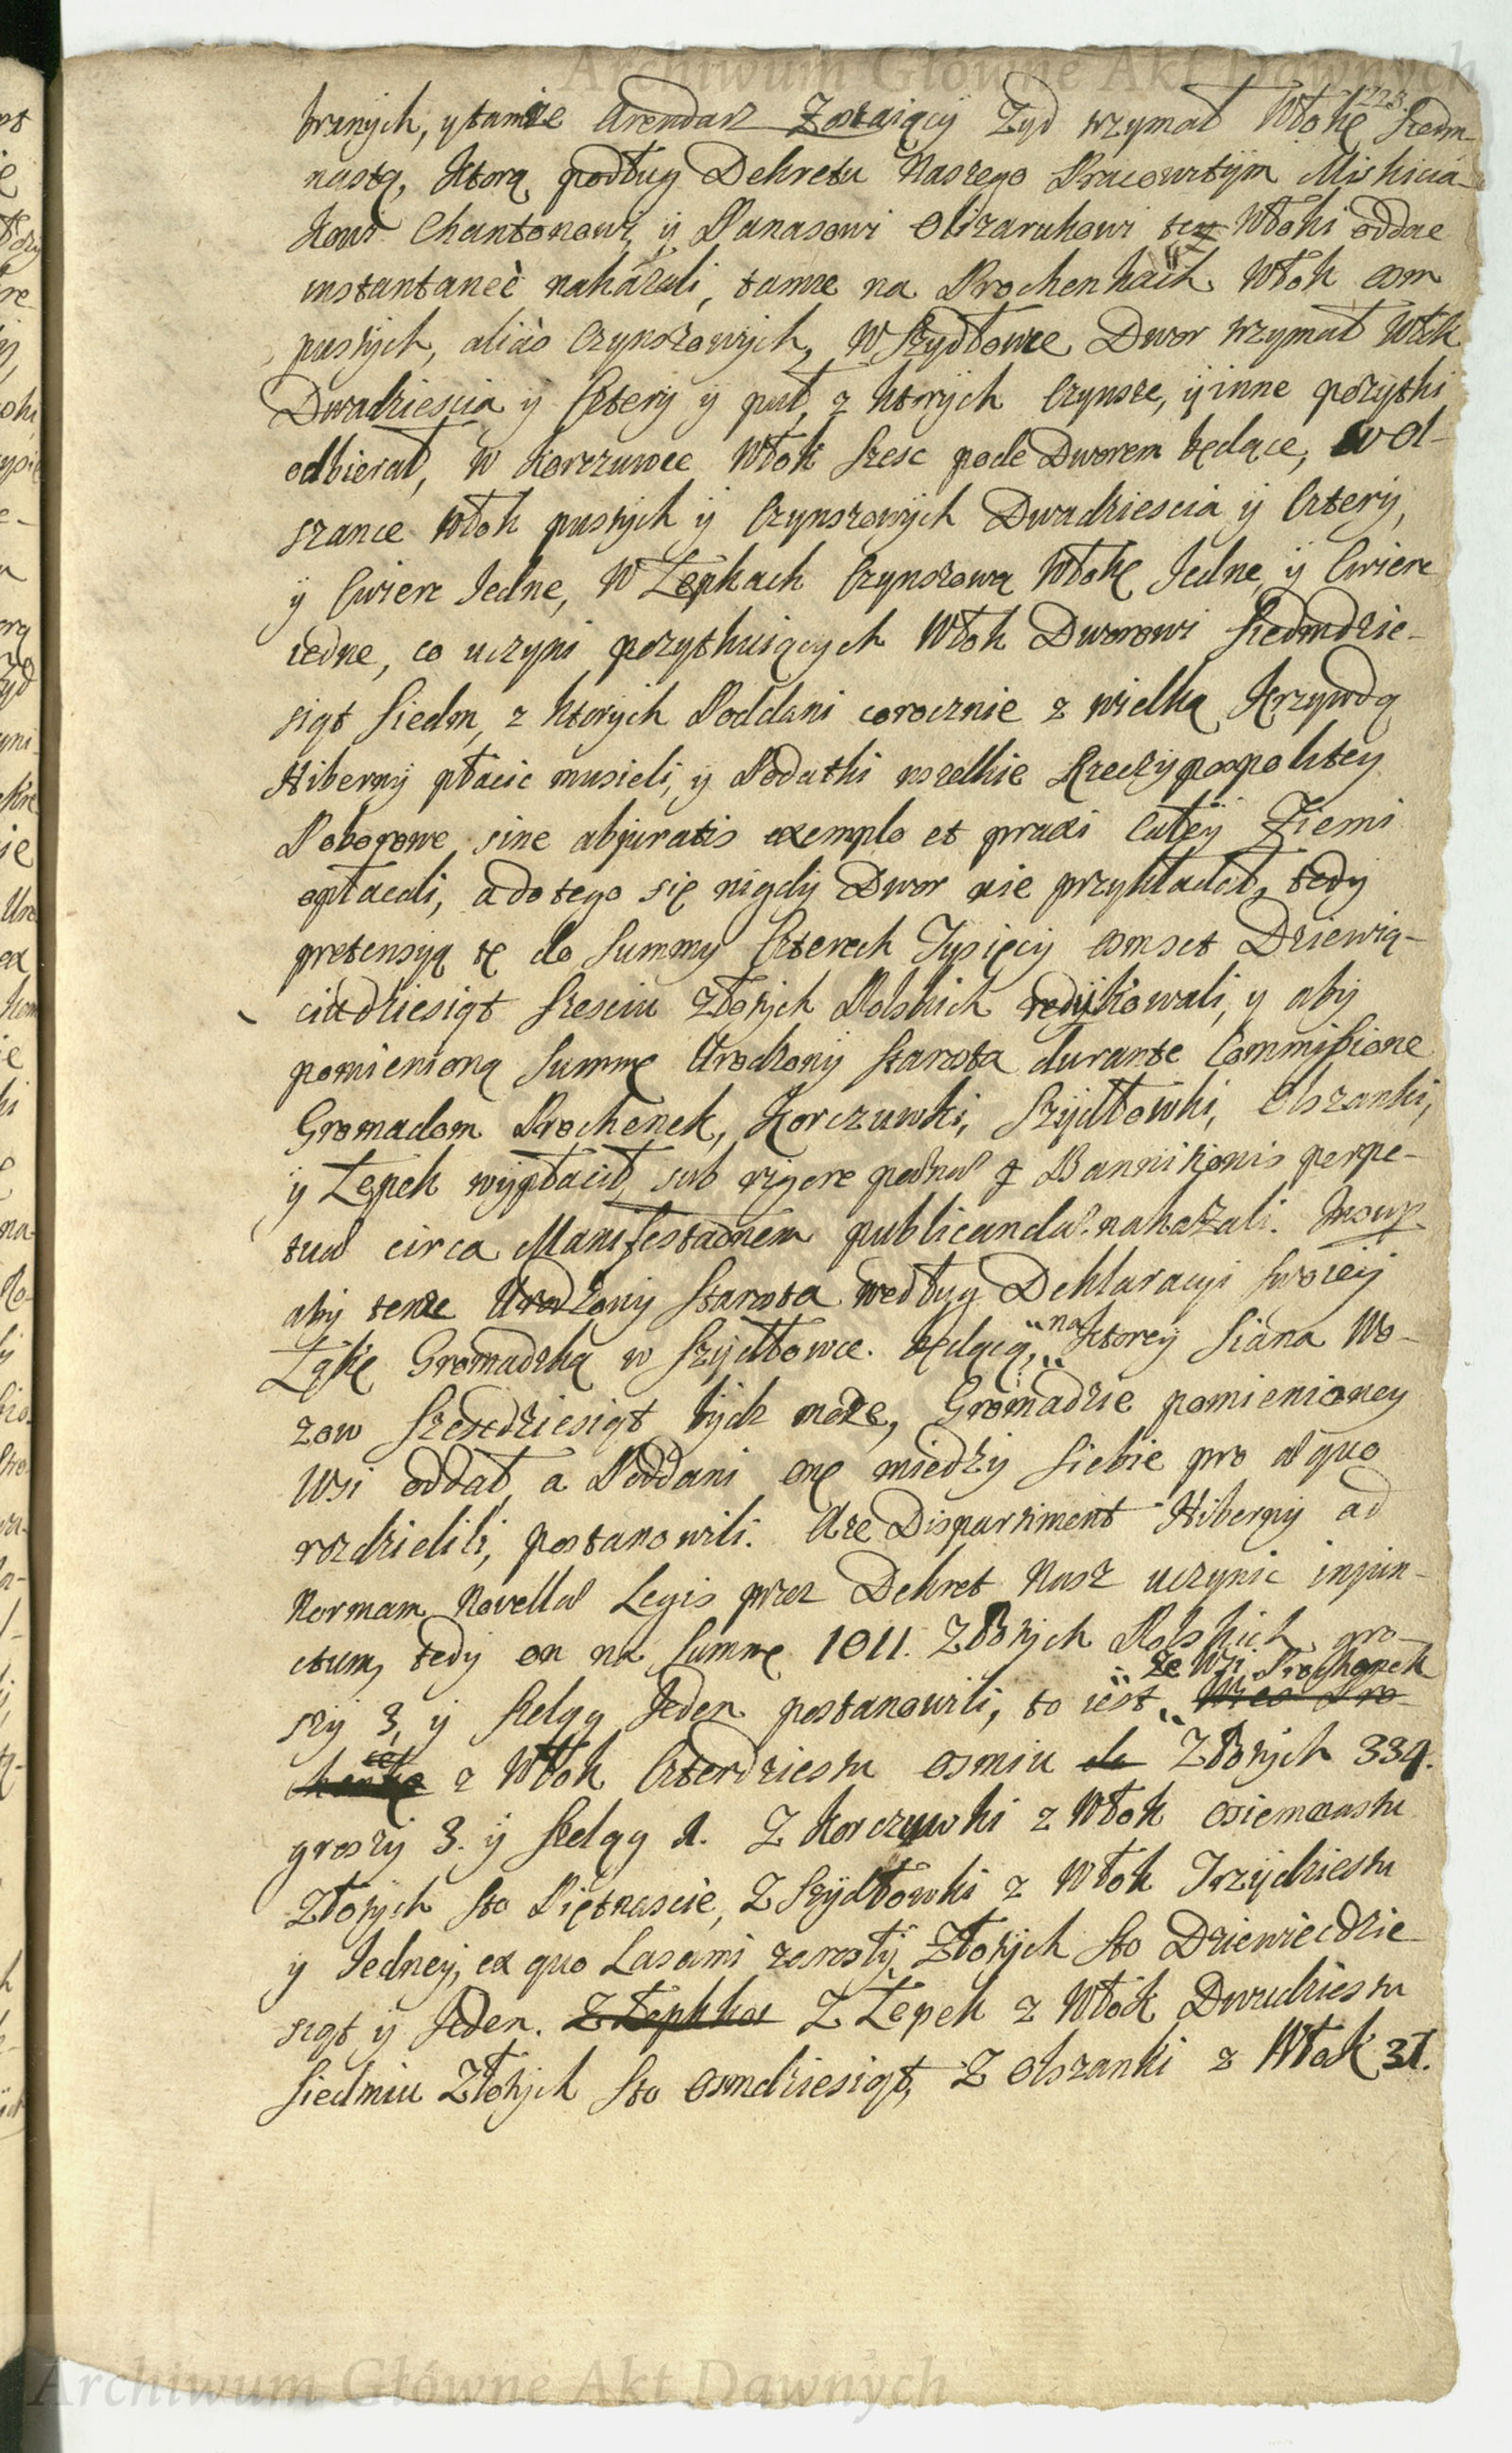 Archiwum Główne Akt Dawnych
223.
branych, y tamże Arendarz Zostaiący Żyd trzymał Włokę Siedm-
nastą, Ktorą podług Dekretu Naszego Pracowitym Miskicia-
kowi Chantonowi, y Panasowi Olizarukowi tey Włoki oddae
instantaneè nakazali, tamże na Prochenkach Włok osm
pustych, aliàs Czynszowych, W Szydłowce Dwor trzymał Włok
Dwadziescia y Cztery y puł, z ktorych Czynsze, y inne pożytki
odbierał, w Korczuwce Włok Szesc pode Dworem będące, w Ol-
szance Włok pustych y Czynszowych Dwadziescia y Cztery,
y Cwierc Jedne, W Łepkach Czynszową Włokę Jedne, y Cwierc
iedne, co uczyni pożytkuiących Włok Dworowi Siedmdzie-
siąt Siedm, z ktorych Poddani corocznie z wielką Krzywdą
Hiberny płacic musieli, y Podatki wszelkie Rzeczypospolitey
Poborowe sine abjuratis exemplo et praxi Całey Ziemi
opłacali, a do tego się nigdy Dwor nie przykładał, tedy
pretensyą tę do Summy Czterech Tysięcy osmset Dziewią-
ciudziesiąt Szesciu Złotych Polskich redykowali, y aby
pomienioną Summę Urodzony Starosta durante Commissione
Gromadom Prochenek, Korczuwki, Szydłowki, Olszanki,
y Łepek wypłacił, sub rigore pænæ Bannitionis perpe-
tuæ circa Manifestaõnem publicandæ nakazali. Insup.
aby tenże Urodzony Starosta według Deklaracyi swoiey
Łąkę Gromadzką w Szydłowce będącą, na Ktorey Siana Wo-
zow Szescdziesiąt bydz może, Gromadzie pomienioney
Wsi oddał, a Poddani onę miedzy siebie pro æquo
rozdzielili, postanowili. Aże Dispartiment Hiberny ad
Normam Novellæ Legis przez Dekret Nasz uczynic injun-
ctum, tedy on na Summę 1011. Złotych Polskich gro-
szy 3, y Szeląg Jeden postanowili, to iest, ze Wsi Prochenek
z Włok Czterdziestu Osmiu Złotych 334.
groszy 3. y Szeląg 1. Z Korczuwki z Włok osiemnastu
Złotych Sto Piętnascie, Z Szydłowki z Włok Trzydziestu
y Jedney, ex quo Lasami zarosły, Złotych Sto Dziewiecdzie-
siąt y Jeden. Z Łepek z Włok Dwudziestu
Siedmiu Złotych Sto Osmdziesiąt, Z Olszanki z Włok 31.
Archiwum Główne Akt Dawnych